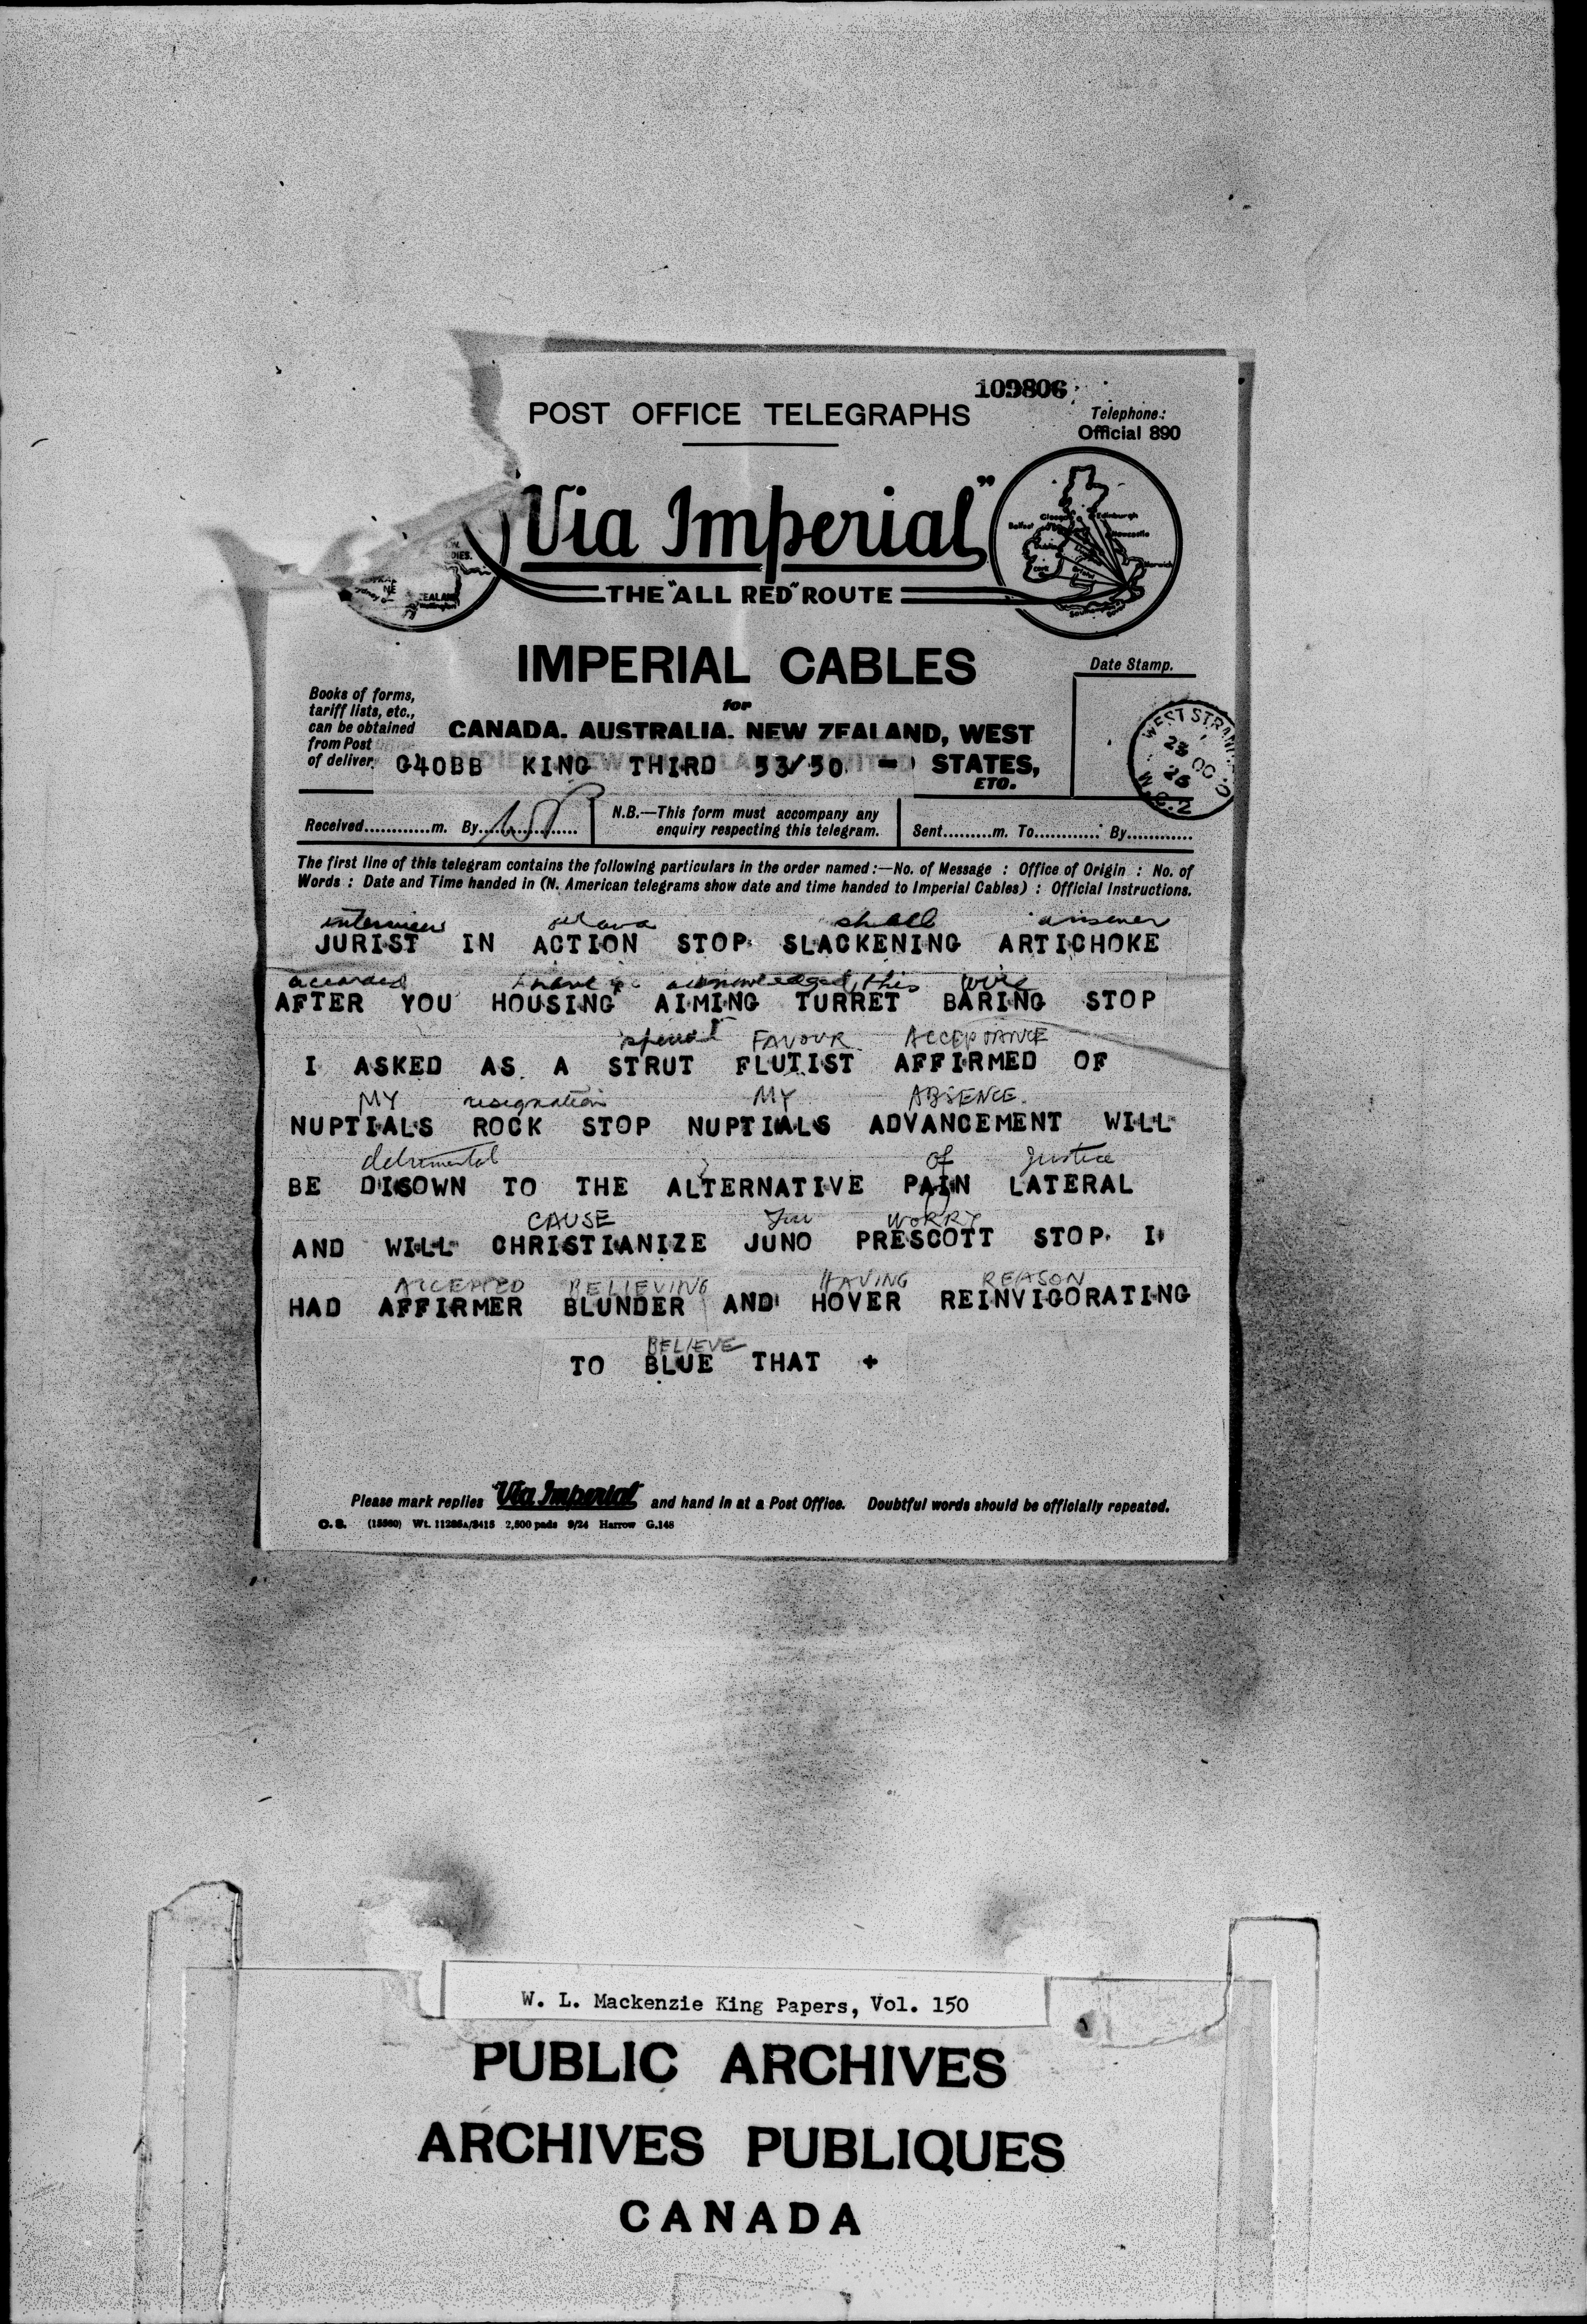 109806
POST OFFICE TELEGRAPHS
Telephone:
Official 890
"Via Imperial"
THE "ALL RED" ROUTE
Glasgow
Edinburgh
Belfast
Newcastle
Norwich
DIES.
EALAN
Wellington
IMPERIAL CABLES
Date Stamp.
for
Books of forms,
tariff lists, etc.,
can be obtained
from Post
of deliver.
CANADA. AUSTRALIA. NEW ZEALAND, WEST
G40BB KING THIRD 53/50 = STATES,
ETC.
WEST STRAND
23 OC
26
W.C.2
Received.............m. By..............
N.B.—This form must accompany any
enquiry respecting this telegram.
Sent..........m. To............. By............
The first line of this telegram contains the following particulars in the order named :—No. of Message : Office of Origin : No. of
Words : Date and Time handed in (N. American telegrams show date and time handed to Imperial Cables) : Official Instructions.
interview shall answer
JURIST IN ACTION STOP SLACKENING ARTICHOKE
acknowledged this wire
AFTER YOU HOUSING AIMING TURRET BARING STOP
special FAVOUR ACCEPTANCE
I ASKED AS A STRUT FLUTIST AFFIRMED OF
MY resignation MY ABSENCE.
NUPTIALS ROCK STOP NUPTIALS ADVANCEMENT WILL
detrimental of Justice
BE DISOWN TO THE ALTERNATIVE PAIN LATERAL
CAUSE you WORRY
AND WILL CHRISTIANIZE JUNO PRESCOTT STOP I
ACCEPTED BELIEVING HAVING REASON
HAD AFFIRMER BLUNDER AND HOVER REINVIGORATING
BELIEVE
TO BLUE THAT +
Please mark replies "Via Imperial" and hand in at a Post Office. Doubtful words should be officially repeated.
Wt. 11286A/3415 2,500 pads 9/24 Harrow G.148
W. L. Mackenzie King Papers, Vol. 150
PUBLIC ARCHIVES
ARCHIVES PUBLIQUES
CANADA